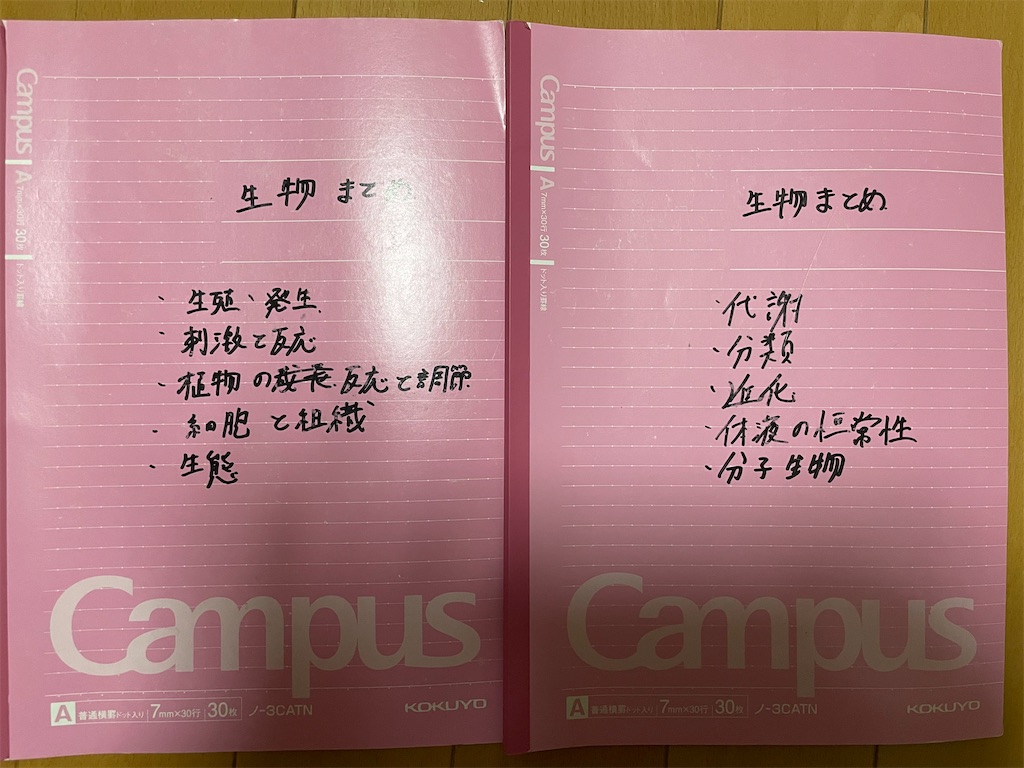 Campus
A 7mm×30行 30枚
ドット入り罫線
生物 まとめ
・生殖、発生
・刺激と反応
・植物の成長反応と調節
・細胞と組織
・生態
Campus
A 普通横罫 ドット入り 7mm×30行 30枚 ノ-3CATN KOKUYO
Campus
A 7mm×30行 30枚
ドット入り罫線
生物まとめ
・代謝
・分類
・進化
・体液の恒常性
・分子生物
Campus
A 普通横罫 ドット入り 7mm×30行 30枚 ノ-3CATN KOKUYO